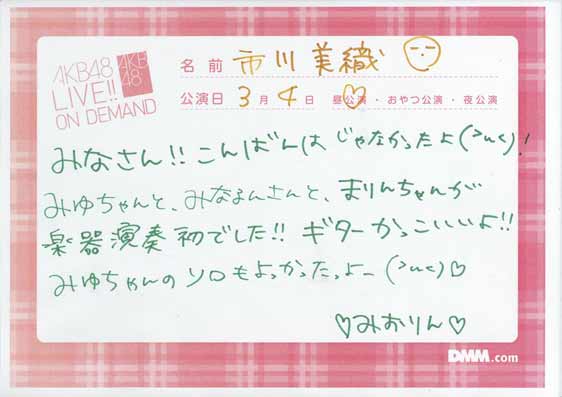 AKB48
LIVE!!
ON DEMAND
AKB
48
名前 市川美織
公演日 3月4日 昼公演・おやつ公演・夜公演
みなさん!! こんばんはじゃなかったよ(>ω<)!
みゆちゃんと、みなるんさんと、まりんちゃんが
楽器演奏初でした!! ギターかっこいいよ!!
みゆちゃんのソロもよっかったっよー(>ω<)♡
♡みおりん♡
DMM.com